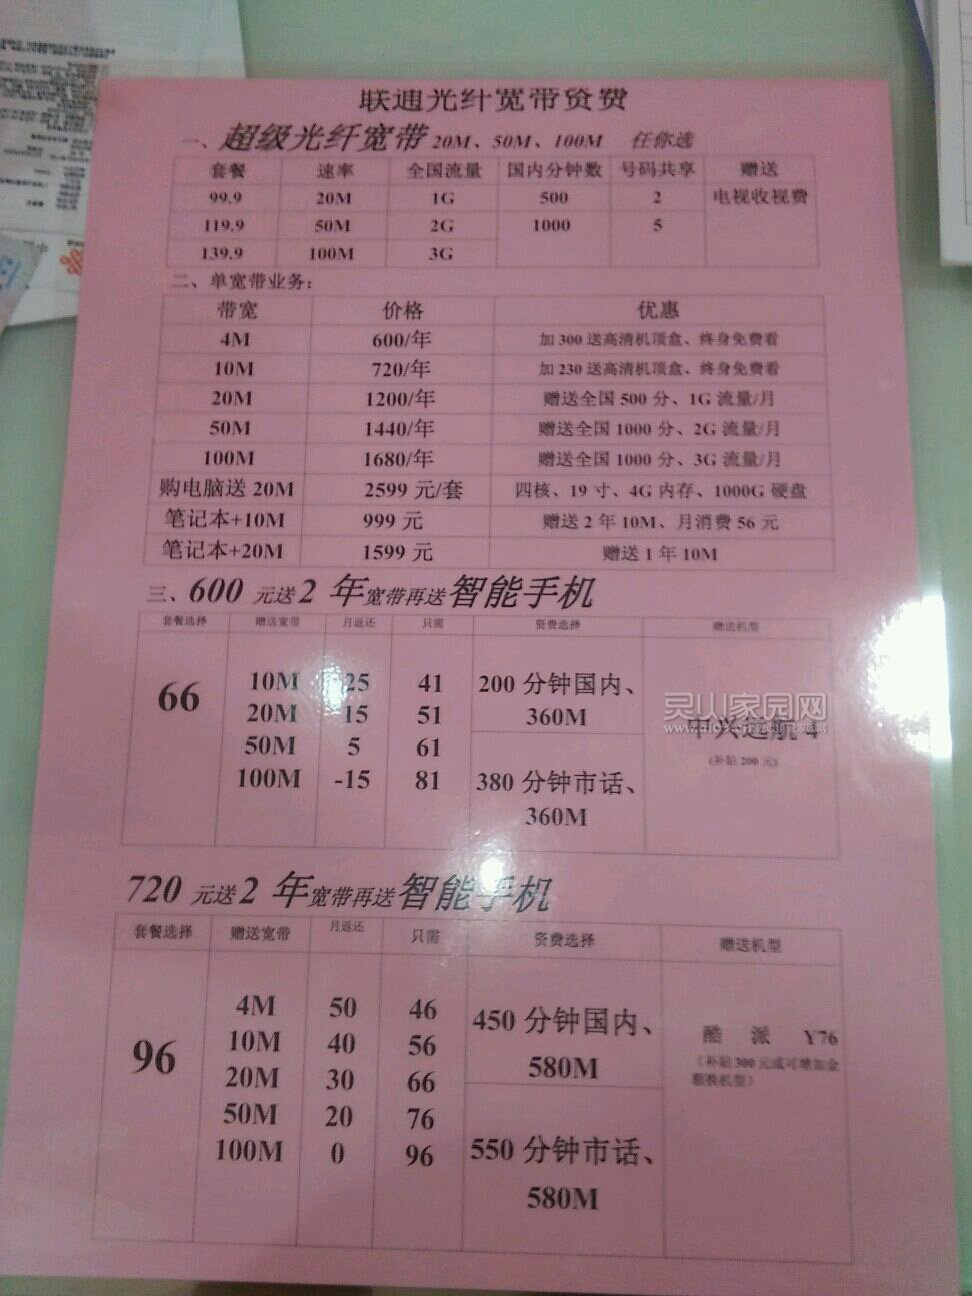 联通光纤宽带资费
一、超级光纤宽带 20M、50M、100M 任你选
套餐 速率 全国流量 国内分钟数 号码共享 赠送
99.9 20M 1G 500 2 电视收视费
119.9 50M 2G 1000 5
139.9 100M 3G
二、单宽带业务：
带宽 价格 优惠
4M 600/年 加 300 送高清机顶盒、终身免费看
10M 720/年 加 230 送高清机顶盒、终身免费看
20M 1200/年 赠送全国 500 分、1G 流量/月
50M 1440/年 赠送全国 1000 分、2G 流量/月
100M 1680/年 赠送全国 1000 分、3G 流量/月
购电脑送 20M 2599 元/套 四核、19 寸、4G 内存、1000G 硬盘
笔记本+10M 999 元 赠送 2 年 10M、月消费 56 元
笔记本+20M 1599 元 赠送 1 年 10M
三、600 元送 2 年宽带再送智能手机
套餐选择 赠送宽带 月返还 只需 资费选择 赠送机型
66
10M 25 41 200 分钟国内、
20M 15 51 360M
50M 5 61
100M -15 81 380 分钟市话、
360M
中兴远航 4
(补贴 200 元)
灵山家园网
720 元送 2 年宽带再送智能手机
套餐选择 赠送宽带 月返还 只需 资费选择 赠送机型
96
4M 50 46 450 分钟国内、
10M 40 56 580M
20M 30 66
50M 20 76
100M 0 96 550 分钟市话、
580M
酷 派 Y76
（补贴 300 元或可增加金
额换机型）